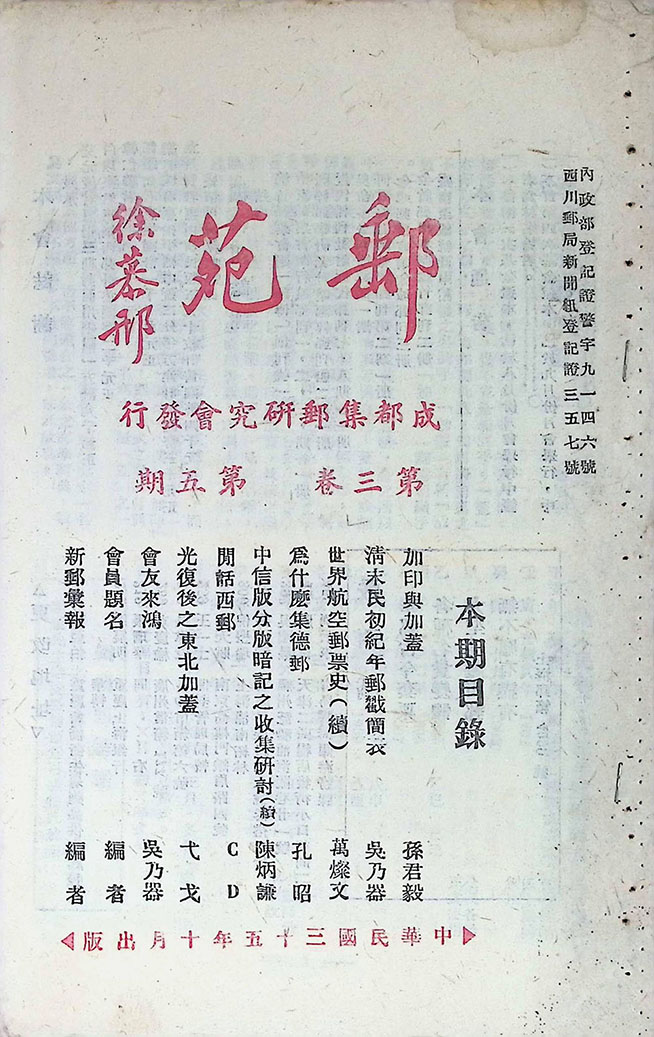 內政部登記證警字九一四六號
西川郵局新聞紙登記證三五七號
郵苑
徐慕邢
成都集郵研究會發行
第三卷 第五期
本期目錄
加印與加蓋 孫君毅
清末民初紀年郵戳簡表 吳乃器
世界航空郵票史(續) 萬燦文
爲什麽集德郵 孔昭
中信版分版暗記之收集研討(續) 陳炳謙
閒話西郵 CD
光復後之東北加蓋 弋戈
會友來鴻 吳乃器
會員題名 編者
新郵彙報 編者
中華民國三十五年十月出版